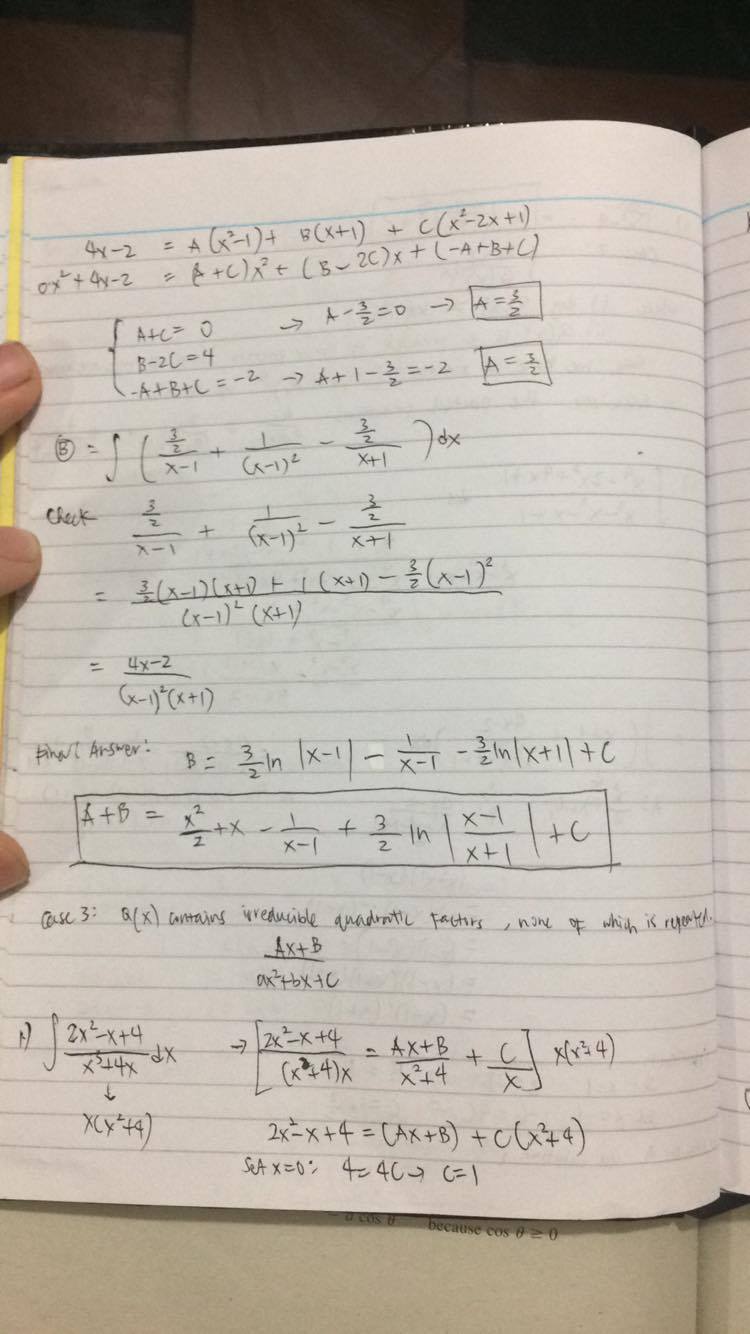 4x-2 = A(x²-1) + B(x+1) + C(x²-2x+1)
0x²+4x-2 = (A+C)x² + (B-2C)x + (-A+B+C)
A+C = 0 → A - 3/2 = 0 → A = 3/2
B-2C = 4
-A+B+C = -2 → A+1-3/2 = -2 A = 3/2
Ⓑ = ∫ ( (3/2)/(x-1) + 1/(x-1)² - (3/2)/(x+1) ) dx
Check (3/2)/(x-1) + 1/(x-1)² - (3/2)/(x+1)
= (3/2(x-1)(x+1) + 1(x+1) - 3/2(x-1)²)/((x-1)²(x+1))
= (4x-2)/((x-1)²(x+1))
Final Answer: B = 3/2 ln |x-1| - 1/(x-1) - 3/2 ln|x+1| + C
A+B = x²/2 + x - 1/(x-1) + 3/2 ln |(x-1)/(x+1)| + C
Case 3: Q(x) contains irreducible quadratic factors, none of which is repeated.
(Ax+B)/(ax²+bx+C)
1) ∫ (2x²-x+4)/(x³+4x) dx → [ (2x²-x+4)/((x²+4)x) = (Ax+B)/(x²+4) + C/x ] x(x²+4)
↓
x(x²+4) 2x²-x+4 = (Ax+B) + C(x²+4)
Set x=0: 4=4C → C=1
because cos θ ≥ 0